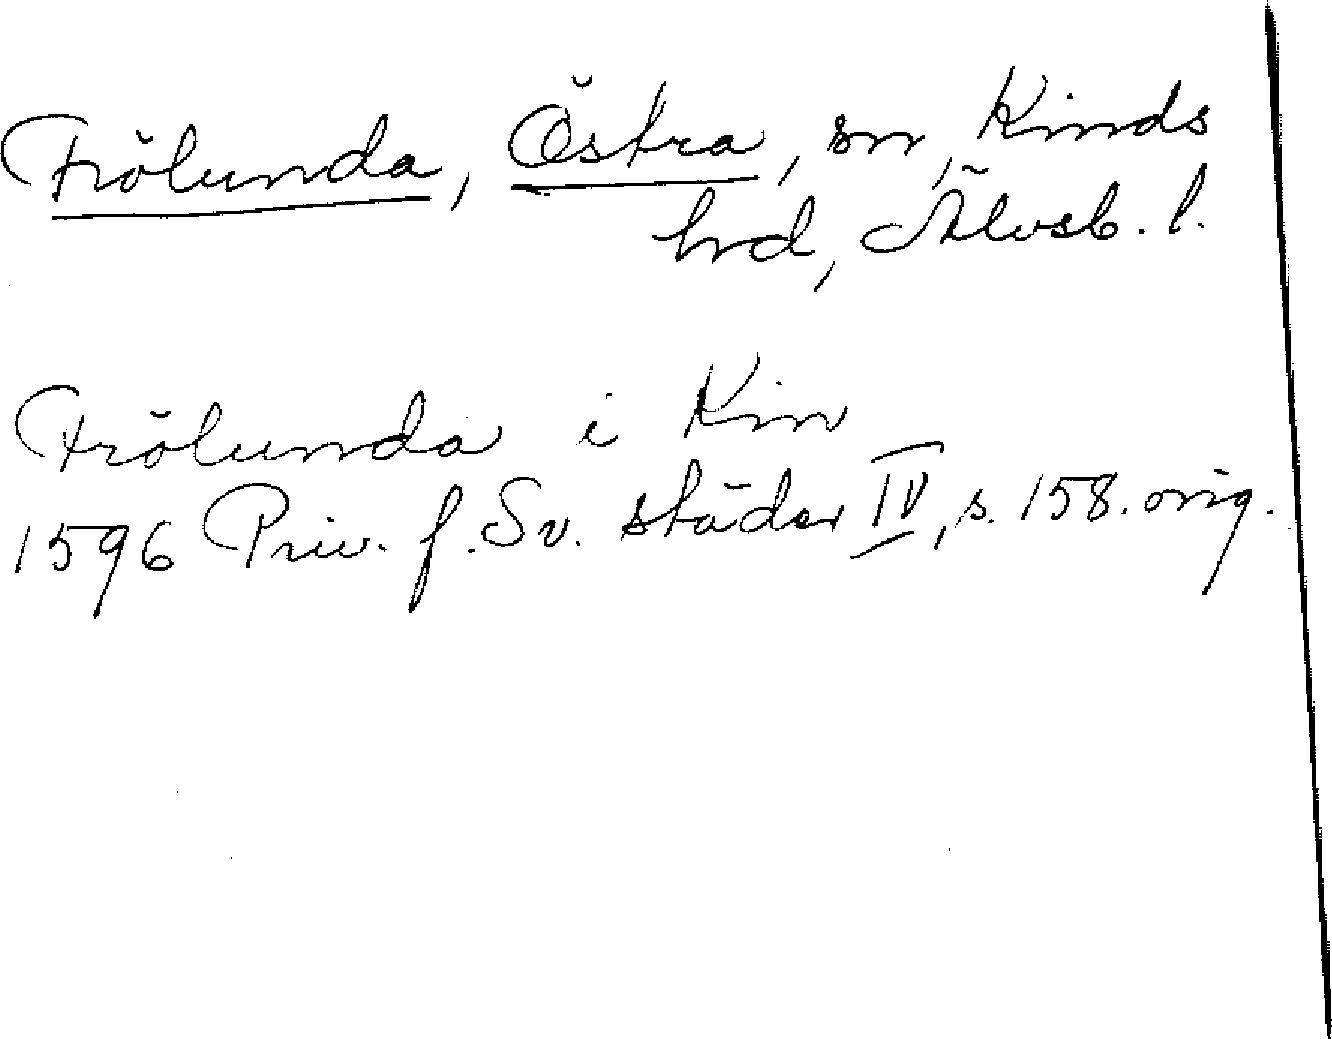 Frölunda, Östra, sn, Kinds
hrd, Älvsb. l.
Frölunda i Kin
1596 Priv. f. Sv. städer IV, s. 158. orig.